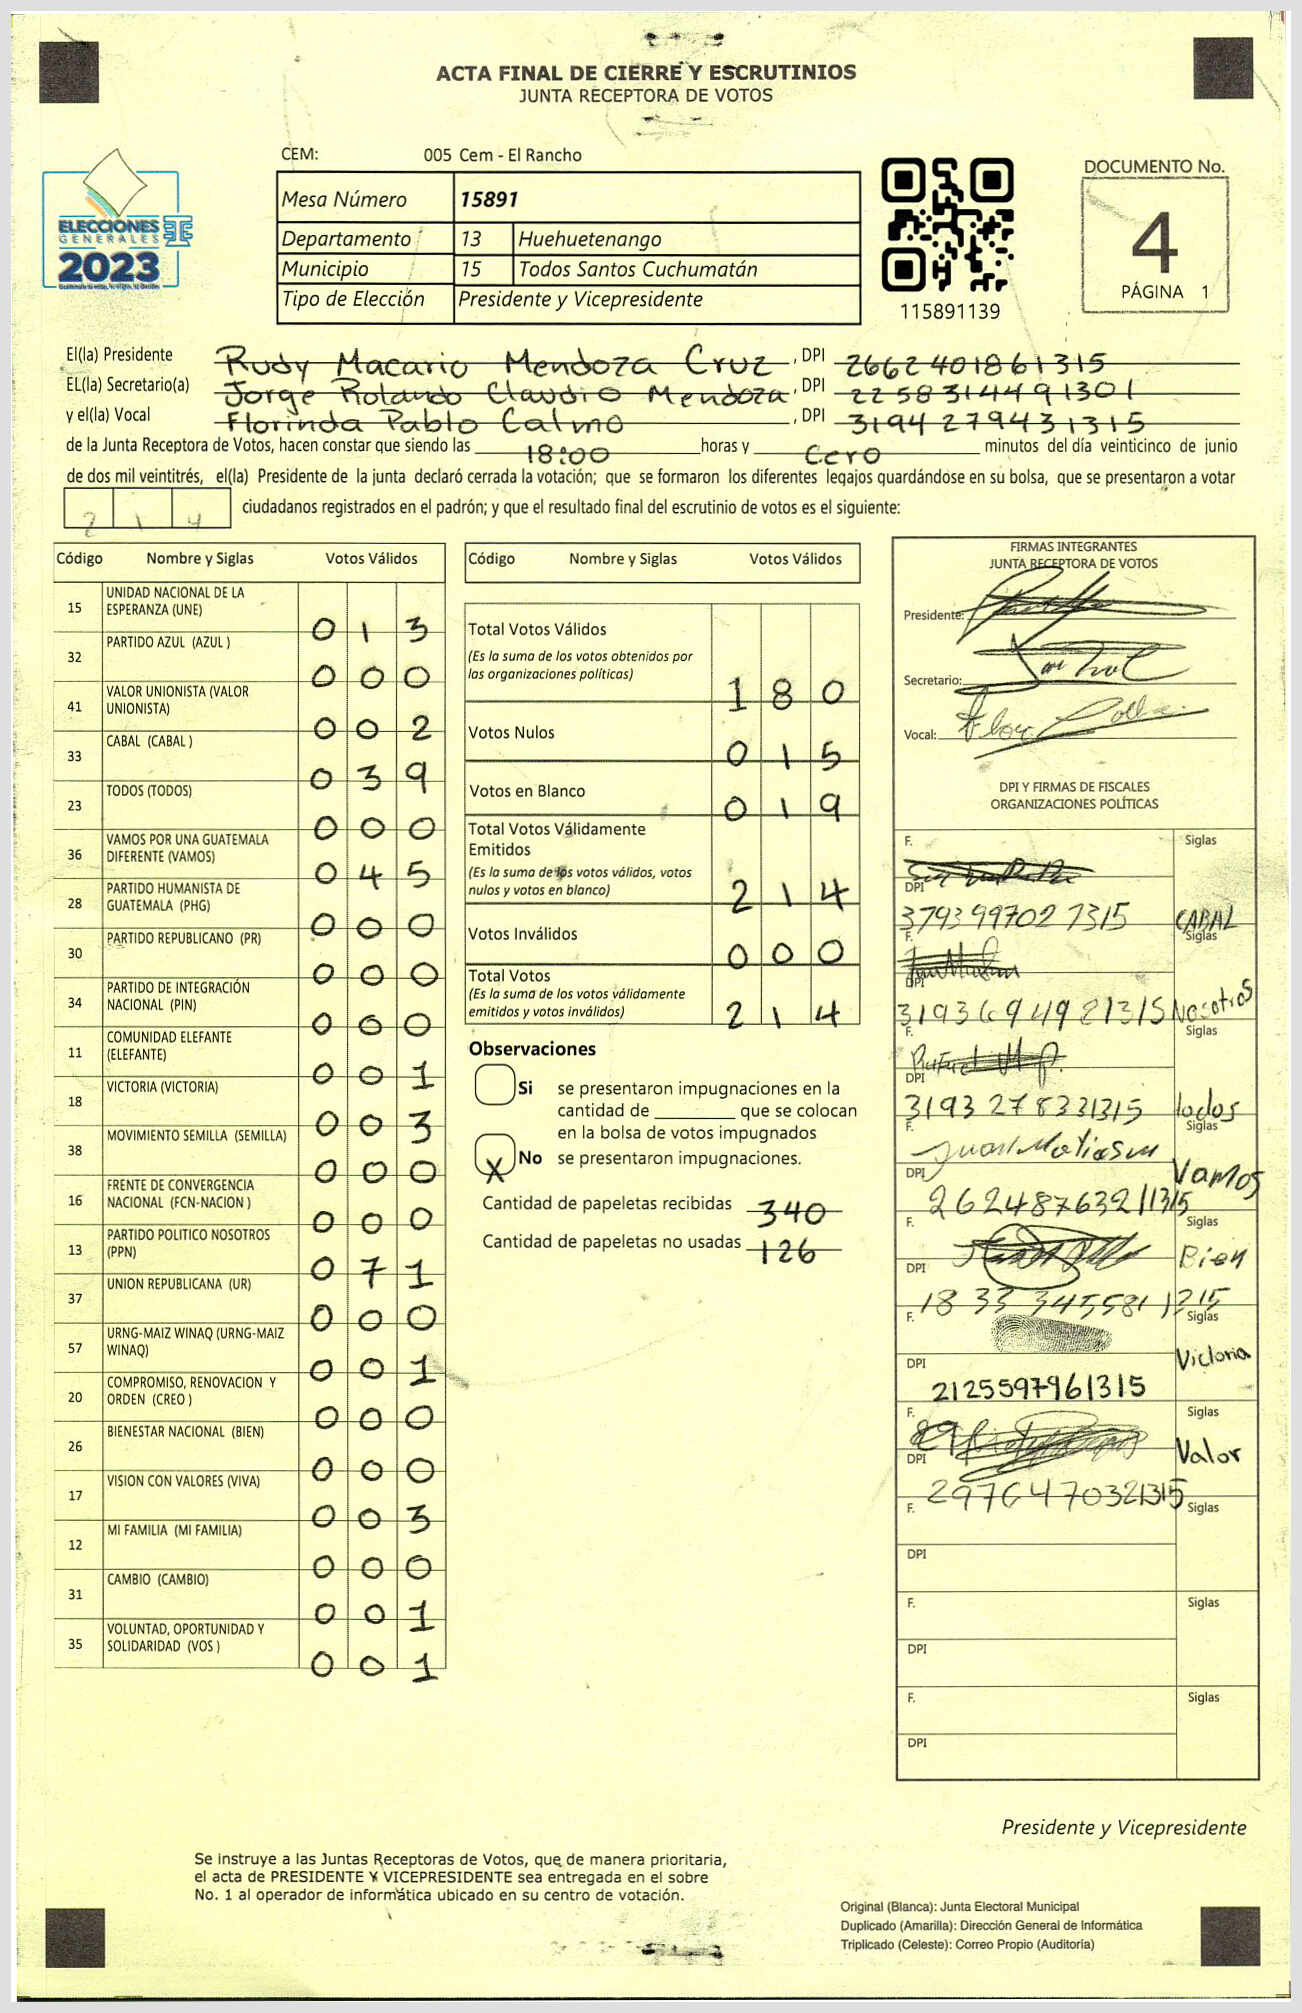 ACTA FINAL DE CIERRE Y ESCRUTINIOS
JUNTA RECEPTORA DE VOTOS
ELECCIONES
GENERALES
2023
CEM: 005 Cem - El Rancho
Mesa Número 15891
Departamento 13 Huehuetenango
Municipio 15 Todos Santos Cuchumatán
Tipo de Elección Presidente y Vicepresidente
115891139
DOCUMENTO No.
4
PÁGINA 1
El(la) Presidente Rudy Macario Mendoza Cruz, DPI 2662401861315
EL(la) Secretario(a) Jorge Rolando Claudio Mendoza, DPI 2258314491301
y el(la) Vocal Florinda Pablo Calmo, DPI 3194279431315
de la Junta Receptora de Votos, hacen constar que siendo las 18:00 horas y Cero minutos del día veinticinco de junio
de dos mil veintitrés, el(la) Presidente de la junta declaró cerrada la votación; que se formaron los diferentes legajos guardándose en su bolsa, que se presentaron a votar
214 ciudadanos registrados en el padrón; y que el resultado final del escrutinio de votos es el siguiente:
Código Nombre y Siglas Votos Válidos
15 UNIDAD NACIONAL DE LA
ESPERANZA (UNE) 013
32 PARTIDO AZUL (AZUL ) 000
41 VALOR UNIONISTA (VALOR
UNIONISTA) 002
33 CABAL (CABAL ) 039
23 TODOS (TODOS) 000
36 VAMOS POR UNA GUATEMALA
DIFERENTE (VAMOS) 045
28 PARTIDO HUMANISTA DE
GUATEMALA (PHG) 000
30 PARTIDO REPUBLICANO (PR) 000
34 PARTIDO DE INTEGRACIÓN
NACIONAL (PIN) 000
11 COMUNIDAD ELEFANTE
(ELEFANTE) 001
18 VICTORIA (VICTORIA) 003
38 MOVIMIENTO SEMILLA (SEMILLA) 000
16 FRENTE DE CONVERGENCIA
NACIONAL (FCN-NACION ) 000
13 PARTIDO POLITICO NOSOTROS
(PPN) 071
37 UNION REPUBLICANA (UR) 000
57 URNG-MAIZ WINAQ (URNG-MAIZ
WINAQ) 001
20 COMPROMISO, RENOVACION Y
ORDEN (CREO ) 000
26 BIENESTAR NACIONAL (BIEN) 000
17 VISION CON VALORES (VIVA) 003
12 MI FAMILIA (MI FAMILIA) 000
31 CAMBIO (CAMBIO) 001
35 VOLUNTAD, OPORTUNIDAD Y
SOLIDARIDAD (VOS ) 001
Código Nombre y Siglas Votos Válidos
Total Votos Válidos
(Es la suma de los votos obtenidos por
las organizaciones políticas) 180
Votos Nulos 015
Votos en Blanco 019
Total Votos Válidamente
Emitidos
(Es la suma de los votos válidos, votos
nulos y votos en blanco) 214
Votos Inválidos 000
Total Votos
(Es la suma de los votos válidamente
emitidos y votos inválidos) 214
Observaciones
Si se presentaron impugnaciones en la
cantidad de ________ que se colocan
en la bolsa de votos impugnados
X No se presentaron impugnaciones.
Cantidad de papeletas recibidas 340
Cantidad de papeletas no usadas 126
FIRMAS INTEGRANTES
JUNTA RECEPTORA DE VOTOS
Presidente:
Secretario:
Vocal:
DPI Y FIRMAS DE FISCALES
ORGANIZACIONES POLÍTICAS
F. Siglas
DPI
3793997021315 CABAL
F. Siglas
DPI
3193694921315 Nosotros
F. Siglas
DPI
3193278331315 Todos
F. Siglas
DPI Vamos
2624876321315
F. Siglas
DPI Bien
F. Siglas
DPI Victoria
2125597961315
F. Siglas
DPI Valor
2976470321315
F. Siglas
DPI
F. Siglas
DPI
F. Siglas
DPI
Presidente y Vicepresidente
Se instruye a las Juntas Receptoras de Votos, que de manera prioritaria,
el acta de PRESIDENTE Y VICEPRESIDENTE sea entregada en el sobre
No. 1 al operador de informática ubicado en su centro de votación.
Original (Blanca): Junta Electoral Municipal
Duplicado (Amarilla): Dirección General de Informática
Triplicado (Celeste): Correo Propio (Auditoría)